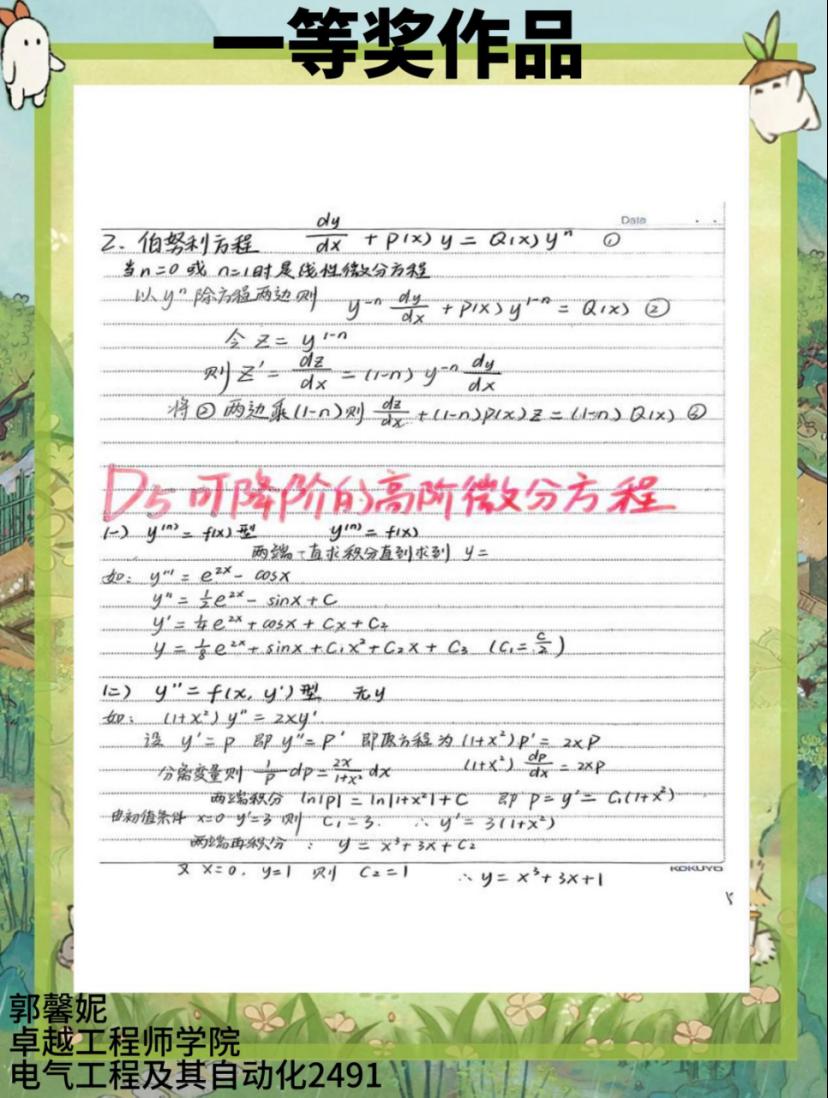 一等奖作品
Date
2. 伯努利方程 dy/dx + P(x) y = Q(x) yⁿ ①
当n=0 或 n=1时是线性微分方程
以yⁿ除方程两边则 y⁻ⁿ dy/dx + P(x) y¹⁻ⁿ = Q(x) ②
令 z = y¹⁻ⁿ
则 z' = dz/dx = (1-n) y⁻ⁿ dy/dx
将②两边乘(1-n)则 dz/dx + (1-n)P(x)z = (1-n) Q(x) ③
D5 可降阶的高阶微分方程
(一) y⁽ⁿ⁾ = f(x) 型 y⁽ⁿ⁾ = f(x)
两端一直求积分直到求到 y =
如: y''' = e²ˣ - cosx
y'' = 1/2 e²ˣ - sinx + C
y' = 1/4 e²ˣ + cosx + Cx + C₂
y = 1/8 e²ˣ + sinx + C₁x² + C₂x + C₃ (C₁ = C/2)
(二) y'' = f(x, y') 型 无y
如: (1+x²) y'' = 2xy'
设 y' = p 即 y'' = p' 即原方程为 (1+x²)p' = 2xp
分离变量则 1/p dp = 2x/1+x² dx (1+x²) dp/dx = 2xp
两端积分 ln|p| = ln|1+x²| + C 即 p = y' = C₁(1+x²)
由初值条件 x=0 y'=3 则 C₁ = 3. ∴ y' = 3(1+x²)
两端再积分: y = x³ + 3x + C₂
又 x=0, y=1 则 C₂ = 1 ∴ y = x³ + 3x + 1
KOKUYO
郭馨妮
卓越工程师学院
电气工程及其自动化2491